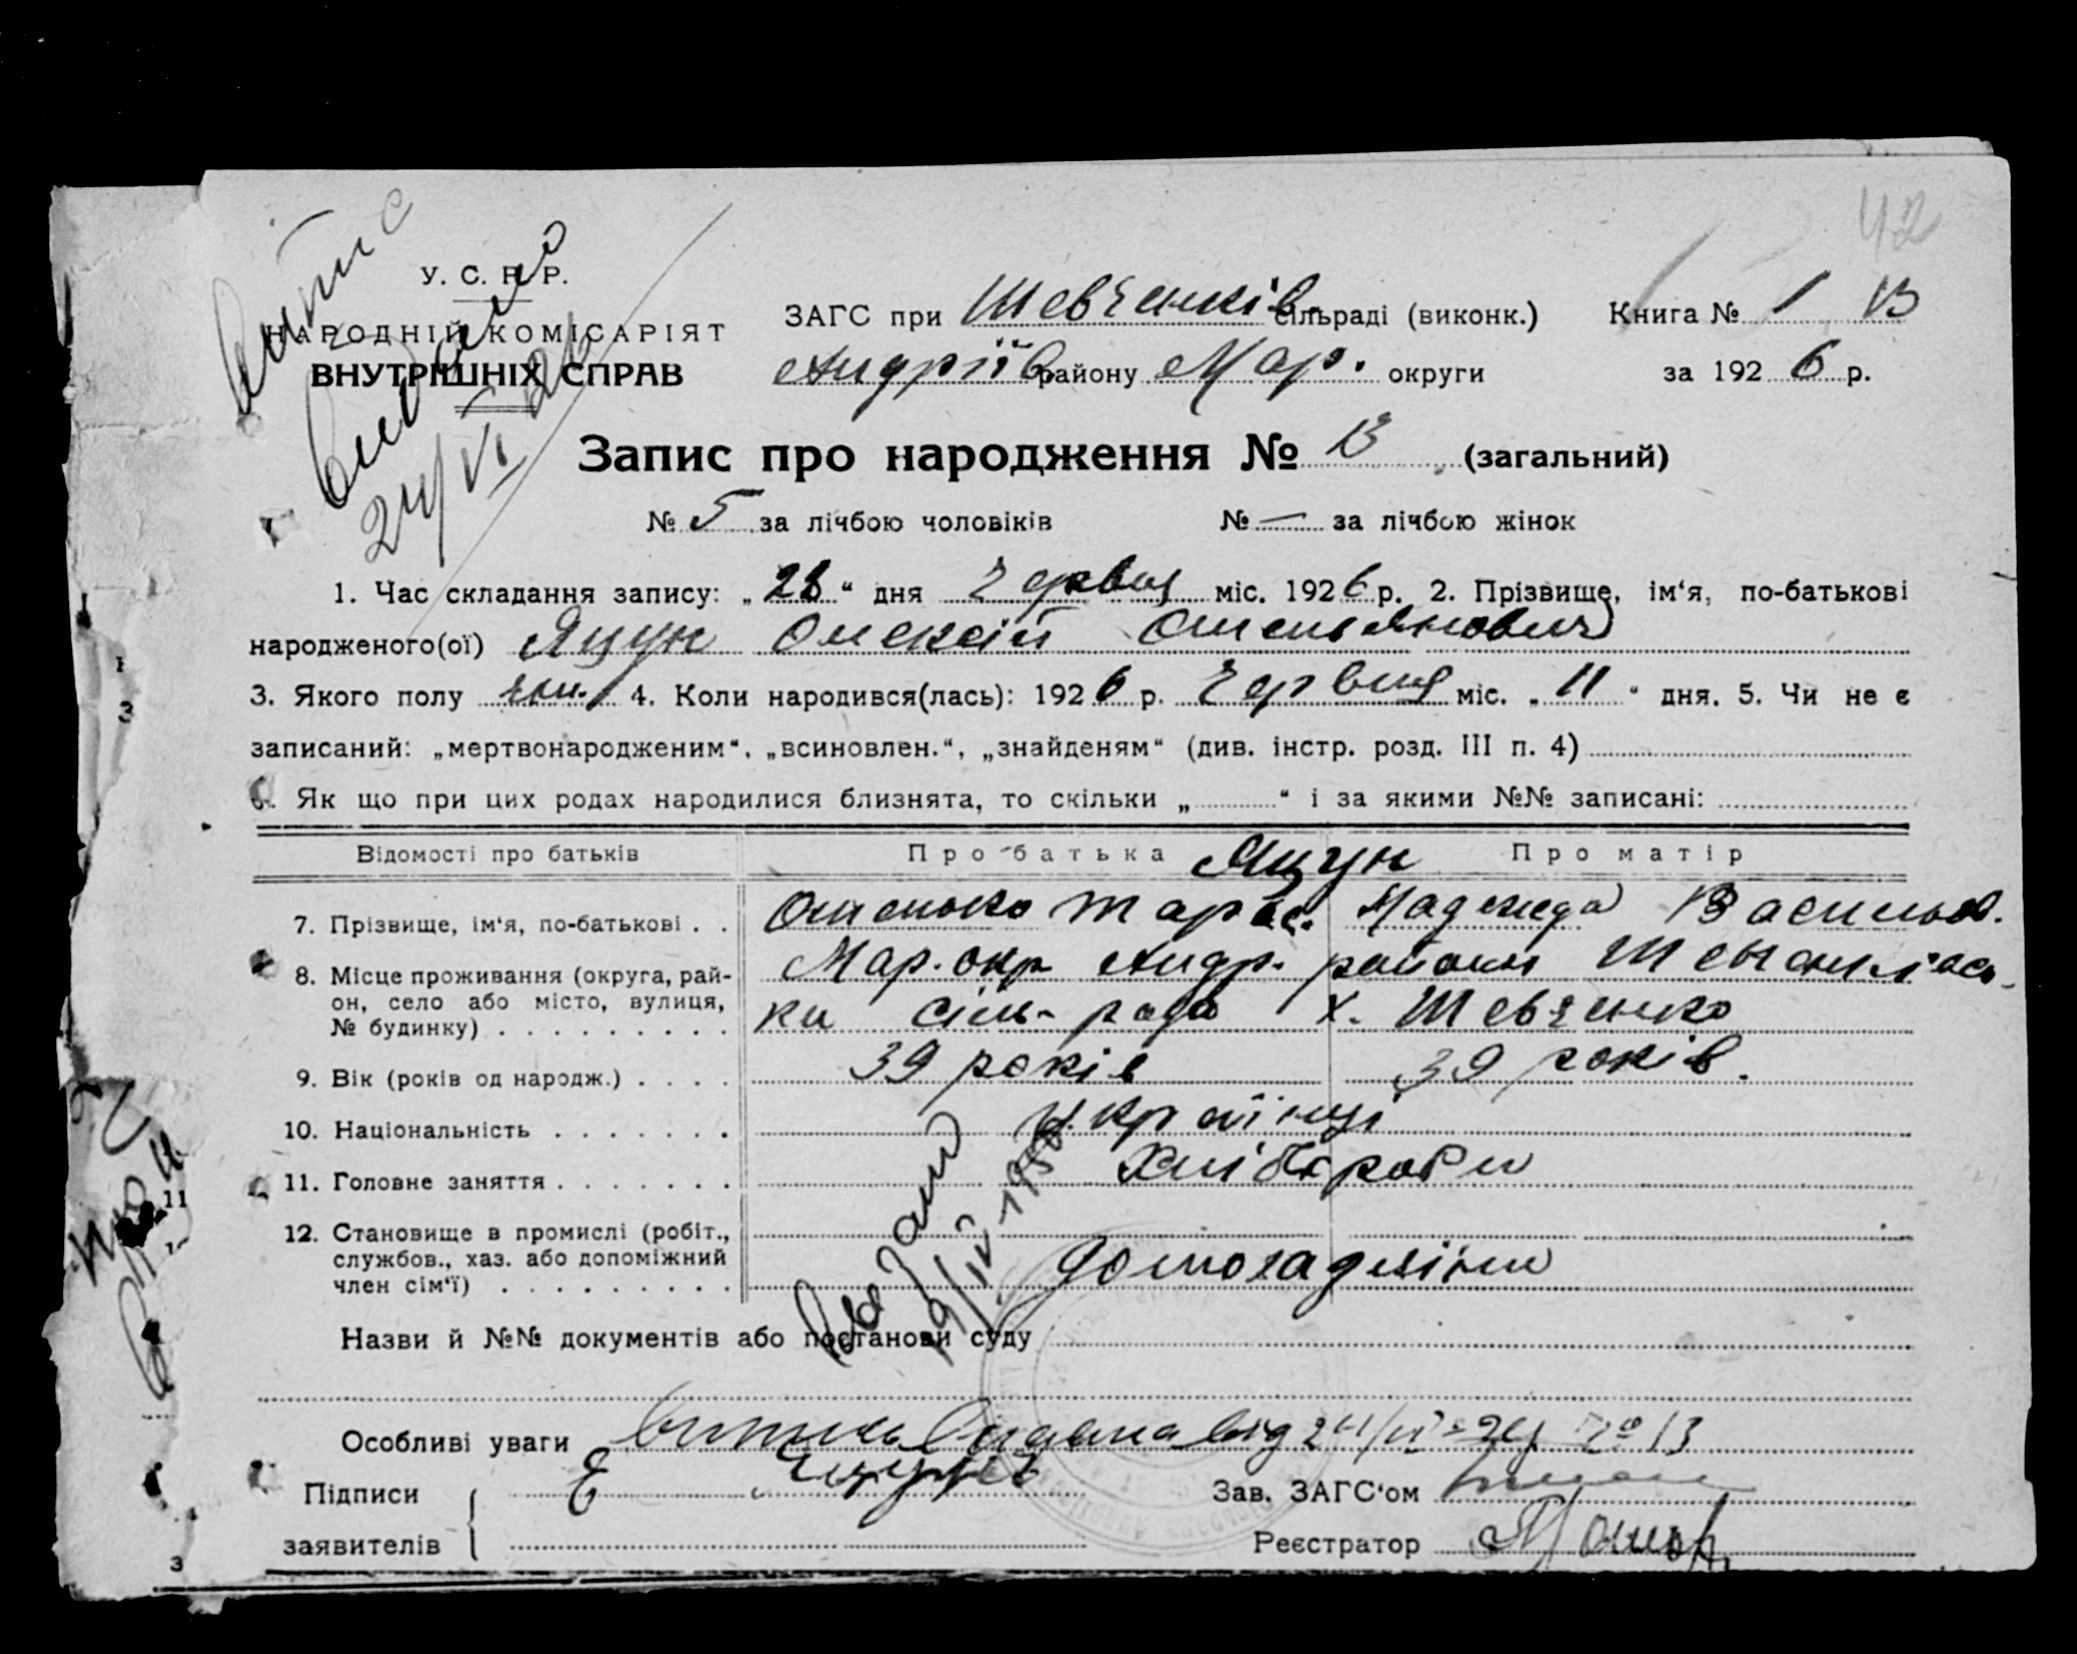 42
Витис
У. С. Р. Р.
НАРОДНІЙ КОМІСАРІЯТ
ВНУТРІШНІХ СПРАВ
24/VI 26
ЗАГС при Шевченків. сільраді (виконк.)
Андріїв району Мар. округи
Книга № 1 13
за 1926 р.
Запис про народження № 13 (загальний)
№ 5 за лічбою чоловіків № — за лічбою жінок
1. Час складання запису: „ “ дня Червця міс. 1926 р. 2. Прізвище, ім‘я, по-батькові
народженого(ої) Яцун Олексій Омельянович
3. Якого полу чол. 4. Коли народився(лась): 1926 р. Червця міс. „11“ дня. 5. Чи не є
записаний: „мертвонародженим“, „всиновлен.“, „знайденям“ (див. інстр. розд. III п. 4)
6. Як що при цих родах народилися близнята, то скільки „ “ і за якими №№ записані:
Відомості про батьків Про батька Яцун Про матір
7. Прізвище, ім‘я, по-батькові . . Омелько Тарас. Надежда Васильов.
8. Місце проживання (округа, рай- Мар. окр Андр. району
он, село або місто, вулиця, ки сіль-рада х. Шевченко
№ будинку) . . . . . . . . .
9. Вік (років од народж.) . . . . 39 років 39 років.
10. Національність . . . . . . . Українці
11. Головне заняття . . . . . . . Хлібороби
12. Становище в промислі (робіт.,
службов., хаз. або допоміжний
член сім‘ї) . . . . . . . . .
Назви й №№ документів або постанови суду
Особливі уваги від 24/VI
Підписи
заявителів
Зав. ЗАГС‘ом
Реєстратор